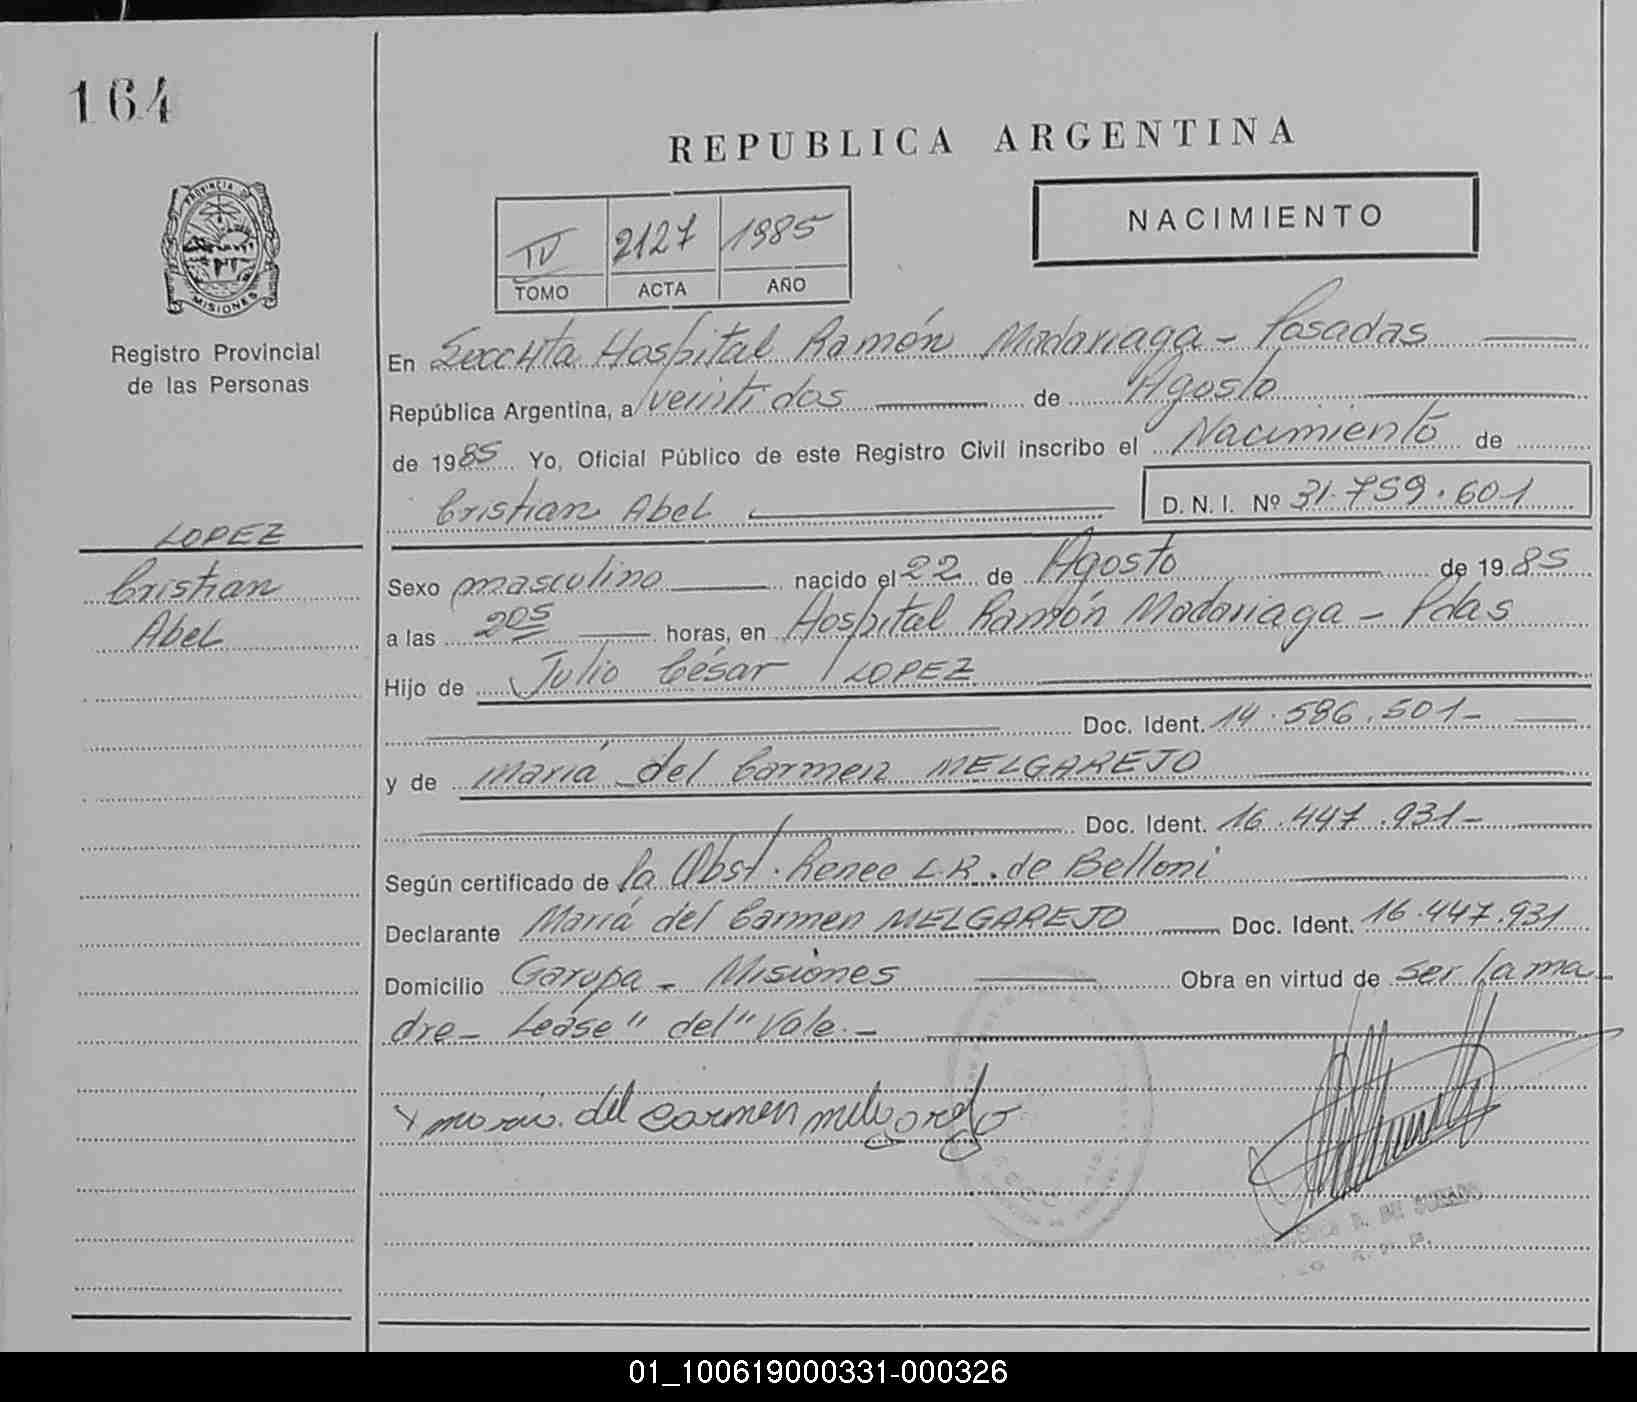 164
REPUBLICA ARGENTINA
PROVINCIA DE
MISIONES
Registro Provincial
de las Personas
IV 2127 1985
TOMO ACTA AÑO
NACIMIENTO
En Secc 4ta Hospital Ramón Madariaga - Posadas
República Argentina, a veinti dos de Agosto
de 1985 Yo, Oficial Público de este Registro Civil inscribo el Nacimiento de
Cristian Abel D. N. I. Nº 31.759.601
LOPEZ
Cristian
Abel
Sexo masculino nacido el 22 de Agosto de 1985
a las 205 horas, en Hospital Ramón Madariaga - Pdas
Hijo de Julio César LOPEZ
Doc. Ident. 14.586.501-
y de María del Carmen MELGAREJO
Doc. Ident. 16.447.931-
Según certificado de la Obst. Renee L.R. de Belloni
Declarante María del Carmen MELGAREJO Doc. Ident. 16.447.931
Domicilio Garupa - Misiones Obra en virtud de ser la ma-
dre - Léase "del" Vale.-
x maria del carmen melgarejo
01_100619000331-000326